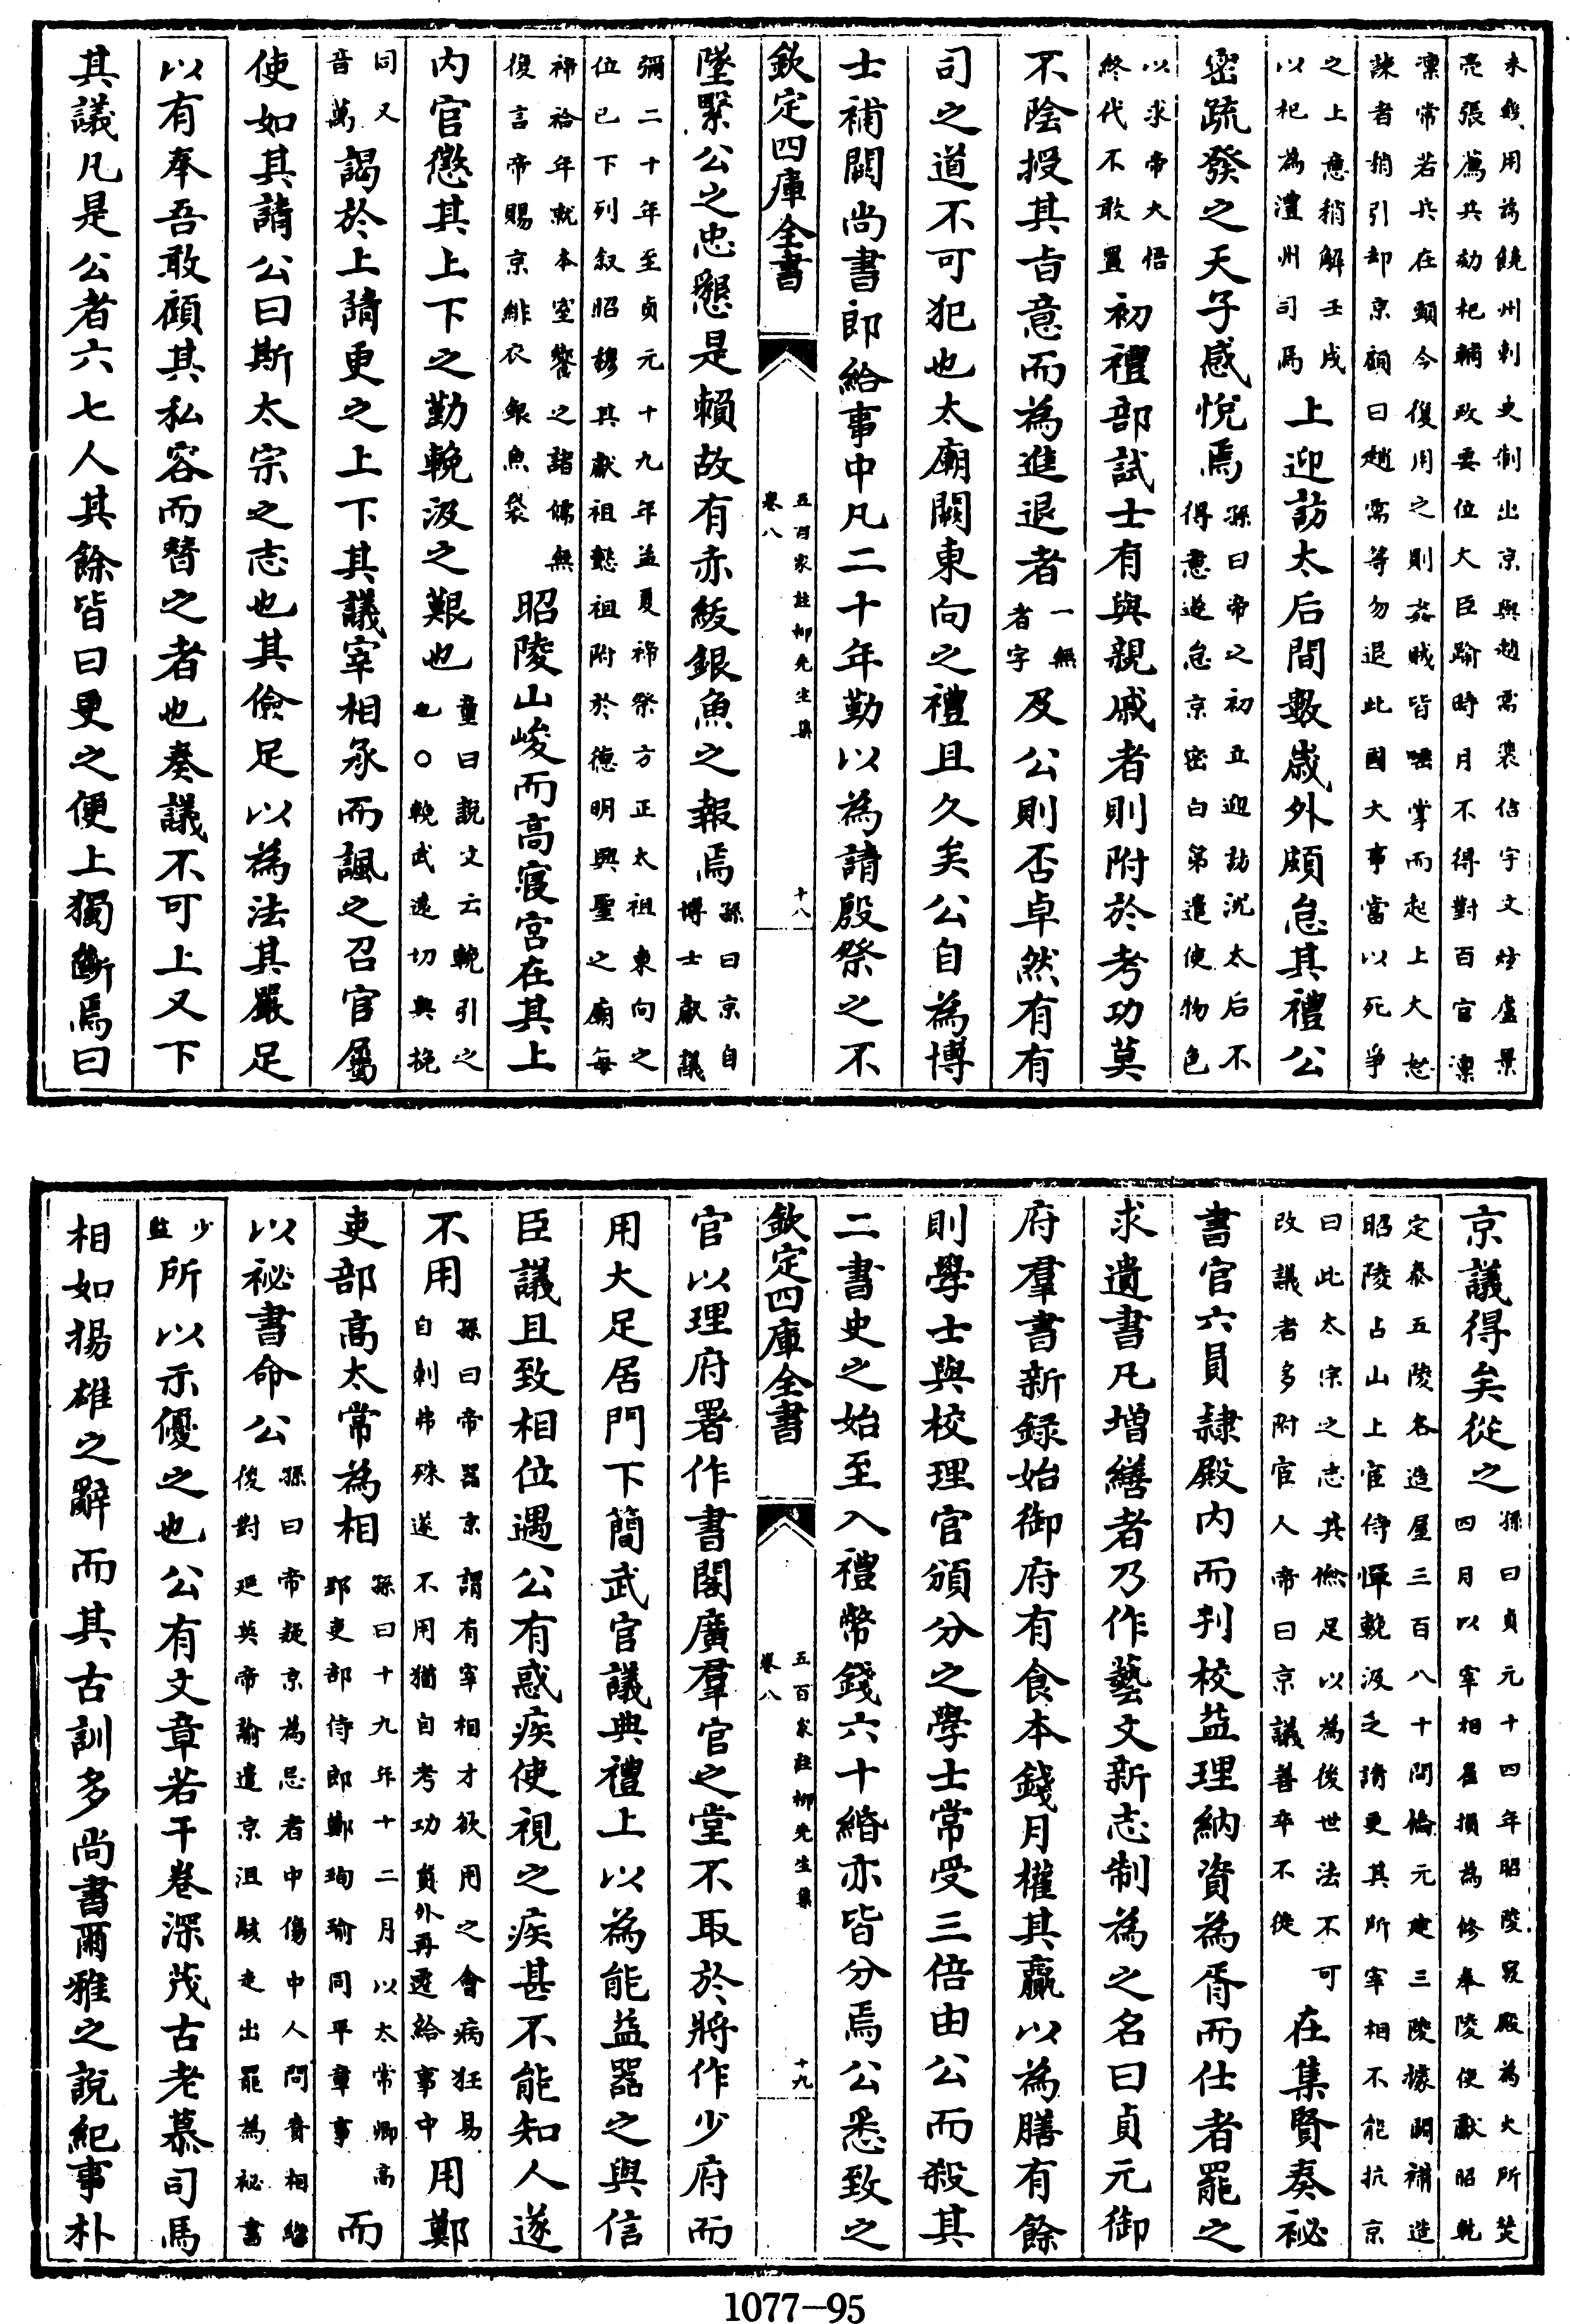 未幾用為饒州刺史制出京與趙需裴佶宇文炫盧景
亮張薦共劾杞輔政要位大臣踰時月不得對百官凜
凜常若兵在頸今復用之則姦賊皆唾掌而起上大怒
諫者稍引却京顧曰趙需等勿退此國大事當以死爭
之上意稍解壬戌以杞為澧州司馬上迎訪太后間數歲外頗怠其禮公
密疏發之天子感悅焉孫曰帝之初立迎訪沈太后不得意遂怠京密白第遣使物色
以求帝大悟終代不敢置初禮部試士有與親戚者則附於考功莫
不陰授其旨意而為進退者一無者字及公則否卓然有有
司之道不可犯也太廟闕東向之禮且久矣公自為博
士補闕尚書郎給事中凡二十年勤以為請殷祭之不
欽定四庫全書
五百家註柳先生集
卷八
十八
墜繄公之忠懇是賴故有赤紱銀魚之報焉孫曰京自博士獻議
彌二十年至貞元十九年益夏禘祭方正太祖東向之
位已下列叙昭穆其獻祖懿祖附於德明興聖之廟每
禘祫年就本室饗之諸儒無復言帝賜京緋衣銀魚袋昭陵山峻而高寢宮在其上
內官懲其上下之勤輓汲之艱也童曰說文云輓引之也○輓武遠切與挽
同又音萬謁於上請更之上下其議宰相承而諷之召官屬
使如其請公曰斯太宗之志也其儉足以為法其嚴足
以有奉吾敢顧其私容而替之者也奏議不可上又下
其議凡是公者六七人其餘皆曰更之便上獨斷焉曰
京議得矣從之孫曰貞元十四年昭陵寢殿為火所焚四月以宰相崔損為修奉陵使獻昭乾
定泰五陵各造屋三百八十間橋元建三陵據闕補造
昭陵占山上宦侍憚輓汲乏請更其所宰相不能抗京
曰此太宗之志其儉足以為後世法不可改議者多附宦人帝曰京議善卒不徙在集賢奏祕
書官六員隸殿內而刋校益理納資為胥而仕者罷之
求遺書凡增繕者乃作藝文新志制為之名曰貞元御
府羣書新錄始御府有食本錢月權其贏以為膳有餘
則學士與校理官頒分之學士常受三倍由公而殺其
二書史之始至入禮幣錢六十緡亦皆分焉公悉致之
欽定四庫全書
五百家註柳先生集
卷八
十九
官以理府署作書閣廣羣官之堂不取於將作少府而
用大足居門下簡武官議典禮上以為能益器之與信
臣議且致相位遇公有惑疾使視之疾甚不能知人遂
不用孫曰帝器京謂有宰相才欲用之會病狂易自刺弗殊遂不用猶自考功員外再遷給事中用鄭
吏部高太常為相孫曰十九年十二月以太常卿高郢吏部侍郎鄭珣瑜同平章事而
以祕書命公孫曰帝疑京為忌者中傷中人問賚相繼後對延英帝諭遣京沮駭走出罷為祕書
少監所以示優之也公有文章若干卷深茂古老慕司馬
相如揚雄之辭而其古訓多尚書爾雅之說紀事朴
1077-95